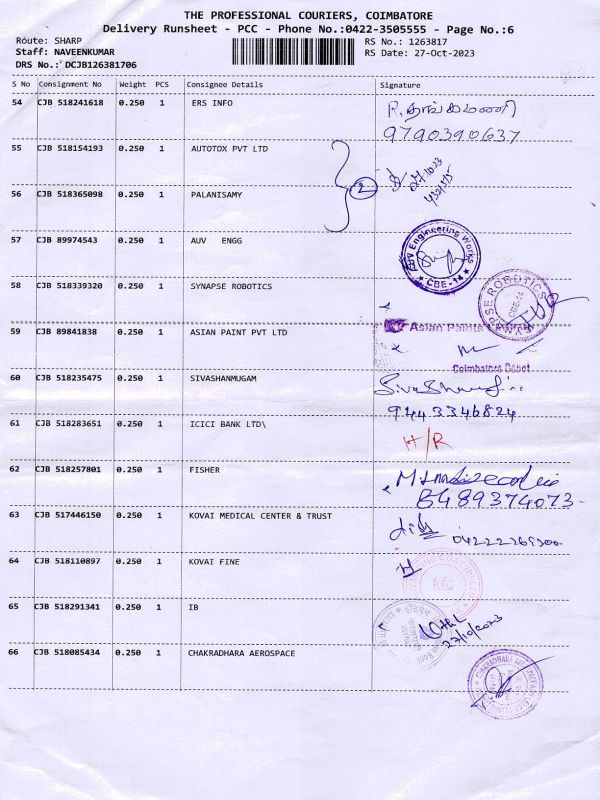 THE PROFESSIONAL COURIERS, COIMBATORE
Delivery Runsheet - PCC - Phone No.:0422-3505555 - Page No.:6
Route: SHARP
RS No.: 1263817
Staff: NAVEENKUMAR
RS Date: 27-Oct-2023
DRS No.: DCJB126381706
S No Consignment No Weight PCS Consignee Details Signature
54 CJB 518241618 0.250 1 ERS INFO
R. தங்கமணி
9790390637
55 CJB 518154193 0.250 1 AUTOTOX PVT LTD
2
56 CJB 518365098 0.250 1 PALANISAMY
57 CJB 89974543 0.250 1 AUV ENGG
Engineering Works
CBE-14
58 CJB 518339320 0.250 1 SYNAPSE ROBOTICS
ROBOTICS
CBE-14
59 CJB 89841838 0.250 1 ASIAN PAINT PVT LTD
Asian Paints Limited
Coimbatore Depot
60 CJB 518235475 0.250 1 SIVASHANMUGAM
9443346824
61 CJB 518283651 0.250 1 ICICI BANK LTD\
H/R
62 CJB 518257801 0.250 1 FISHER
8489374073
63 CJB 517446150 0.250 1 KOVAI MEDICAL CENTER & TRUST
64 CJB 518110897 0.250 1 KOVAI FINE
kfc
65 CJB 518291341 0.250 1 IB
27/10/2023
66 CJB 518085434 0.250 1 CHAKRADHARA AEROSPACE